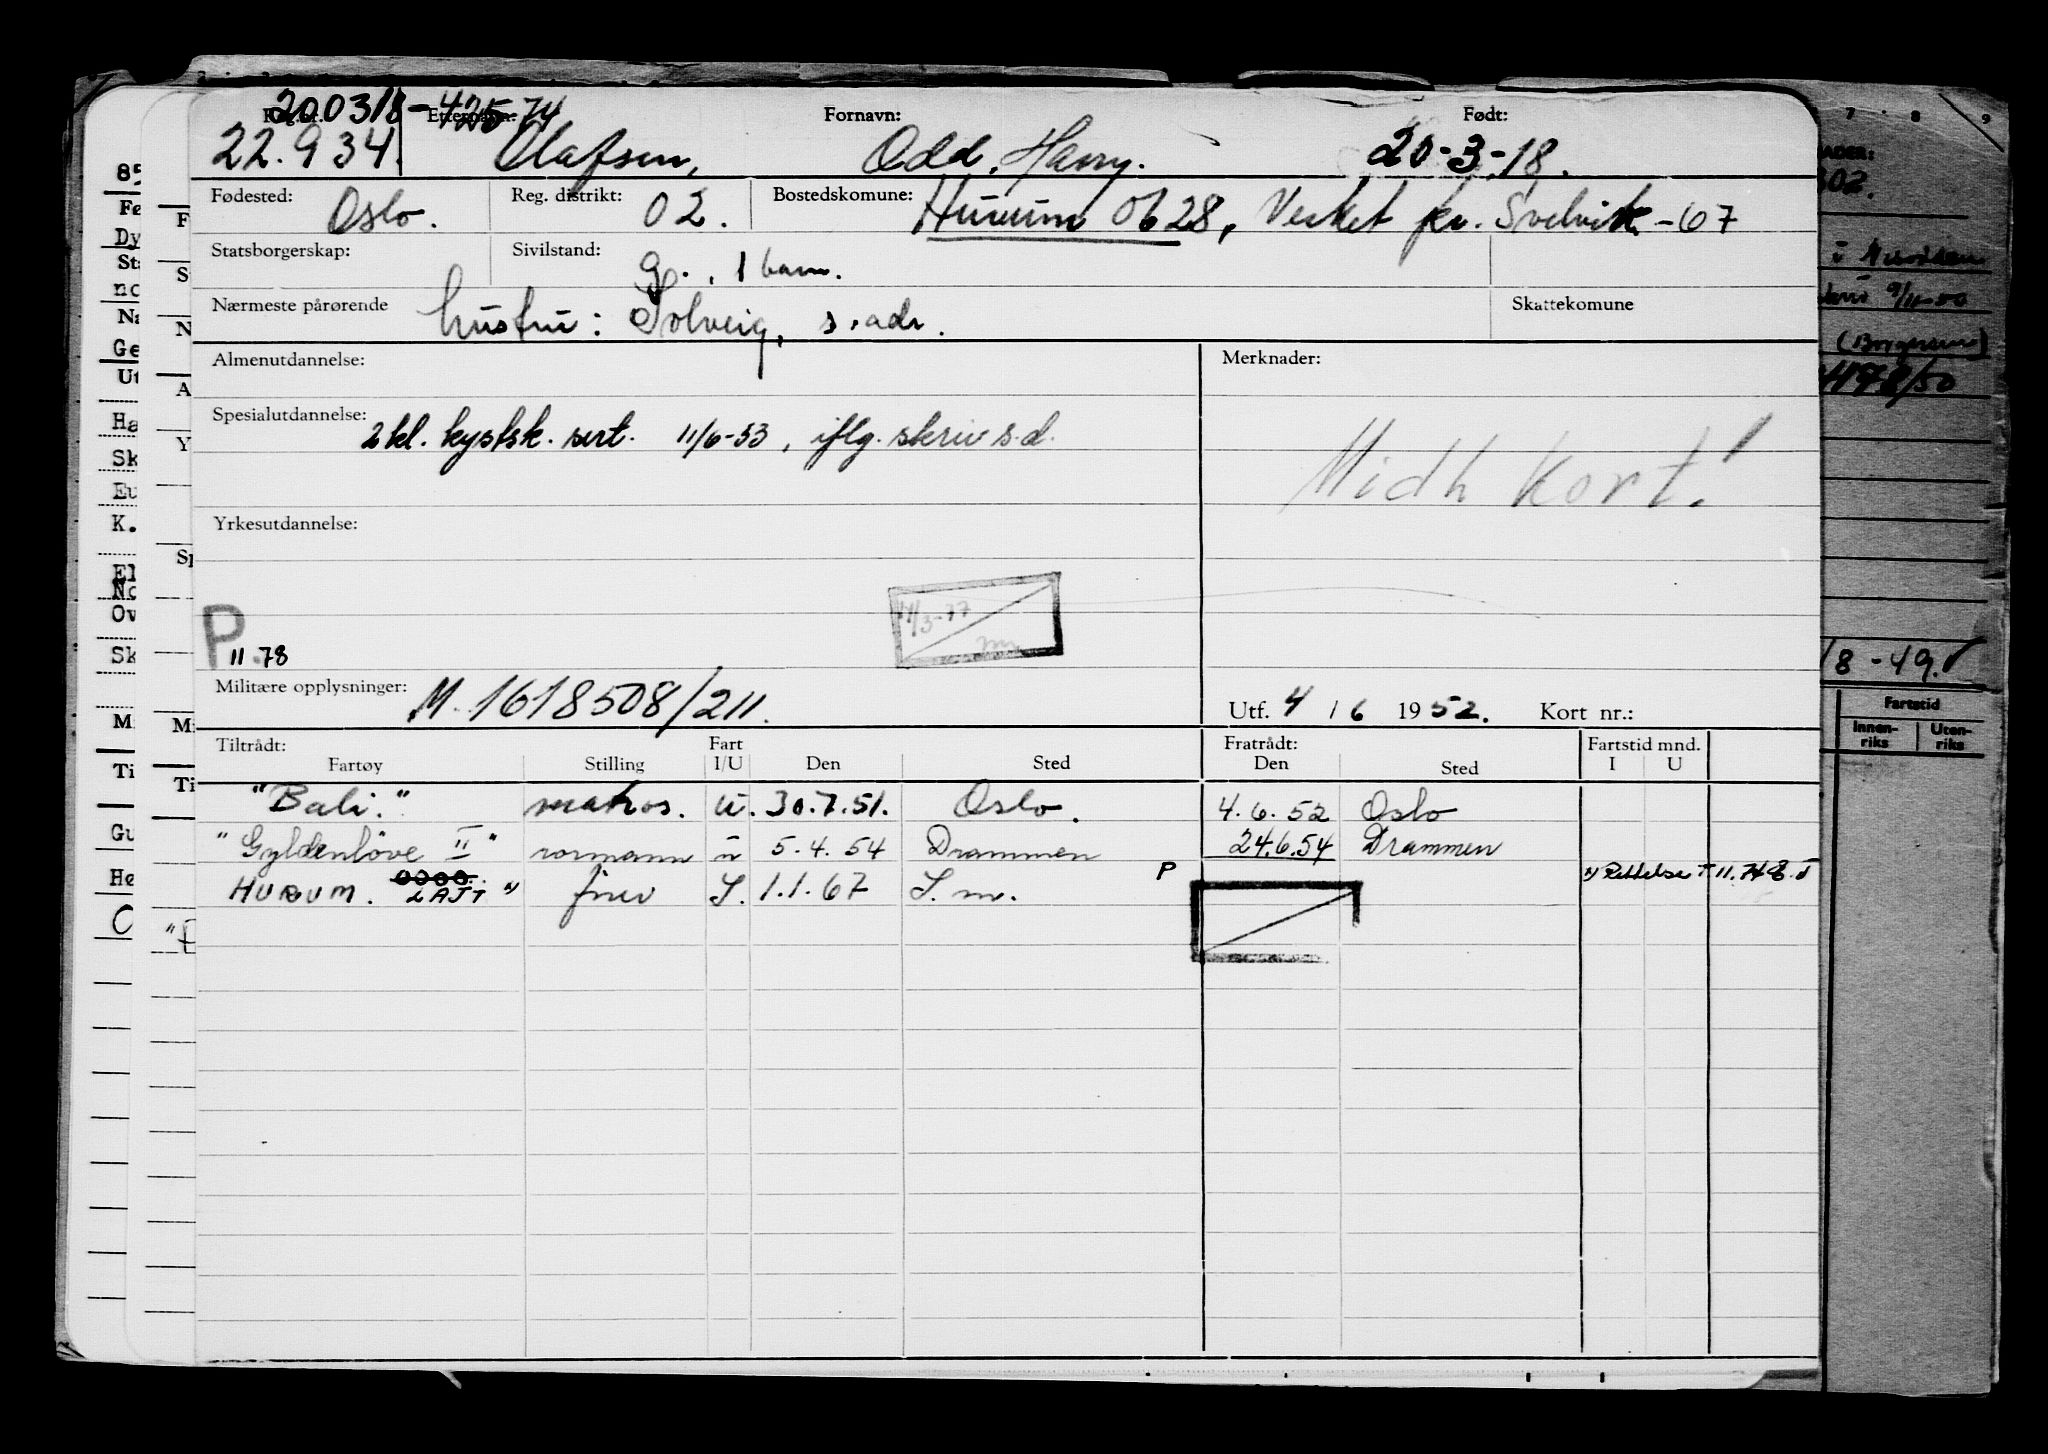 200318-42574
Etternavn: Fornavn: Født:
22.934. Olafsen, Odd, Harry. 20-3-18.
Fødested: Oslo. Reg. distrikt: 02. Bostedskomune: Hurum 0628, Verket pr. Svelvik -67
Statsborgerskap: Sivilstand: g., 1 barn.
Nærmeste pårørende hustru: Solveig, s. adr. Skattekomune
Almenutdannelse: Merknader:
Spesialutdannelse: 2 kl. kystsk. sert. 11/6-53, iflg. skriv s.d.
Midl kort!
Yrkesutdannelse:
P
11.78
Militære opplysninger: M. 1618508/211. Utf. 4 / 6 1952. Kort nr.:
Tiltrådt: Fart Fratrådt: Fartstid mnd.
Fartøy Stilling I/U Den Sted Den Sted I U
"Bali." matros. u. 30.7.51. Oslo. 4.6.52 Oslo
"Gyldenløve II" rormann u 5.4.54 Drammen 24.6.54 Drammen
HURUM. S. 1.1.67 S.m. P Rettelse T 11.748.
85
Fø
Dy
St
no
Na
Ge
Ut
Ha
Sk
Eu
K.
El
No
Ov
Sk
M
Ti
Gu
Hø
F
S
N
A
Y
Sp
Mi
Ti
7 8 9
ADER:
602.
9/11-50
498/50
/8-49.
Fartstid
Innen-
riks
Uten-
riks